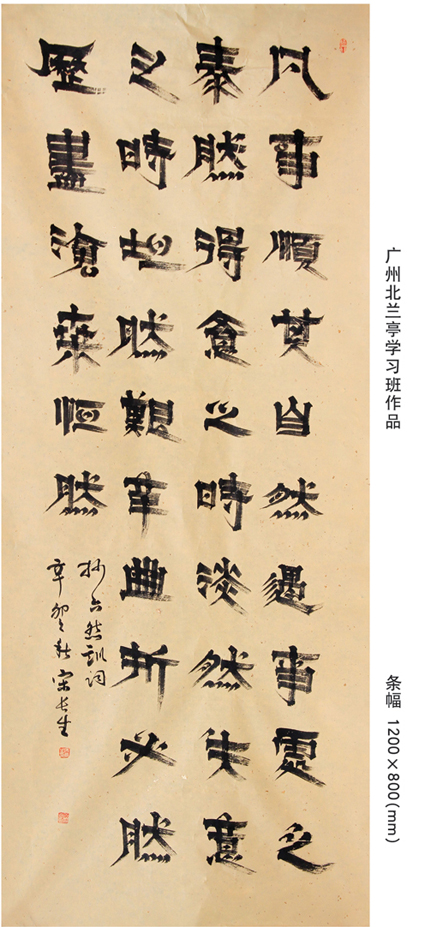 凡事順其自然遇事處之
泰然得意之時淡然失意
之時坦然艱辛曲折必然
歷盡滄桑恒然
抄六然訓詞
辛卯之秋 宋长生
广州北兰亭学习班作品
条幅 1200×800(mm)